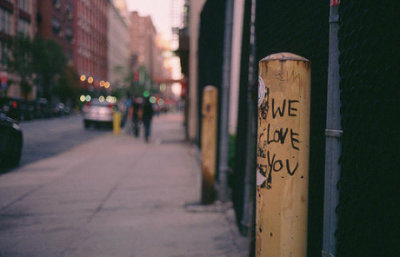 WE
LOVE
YOU